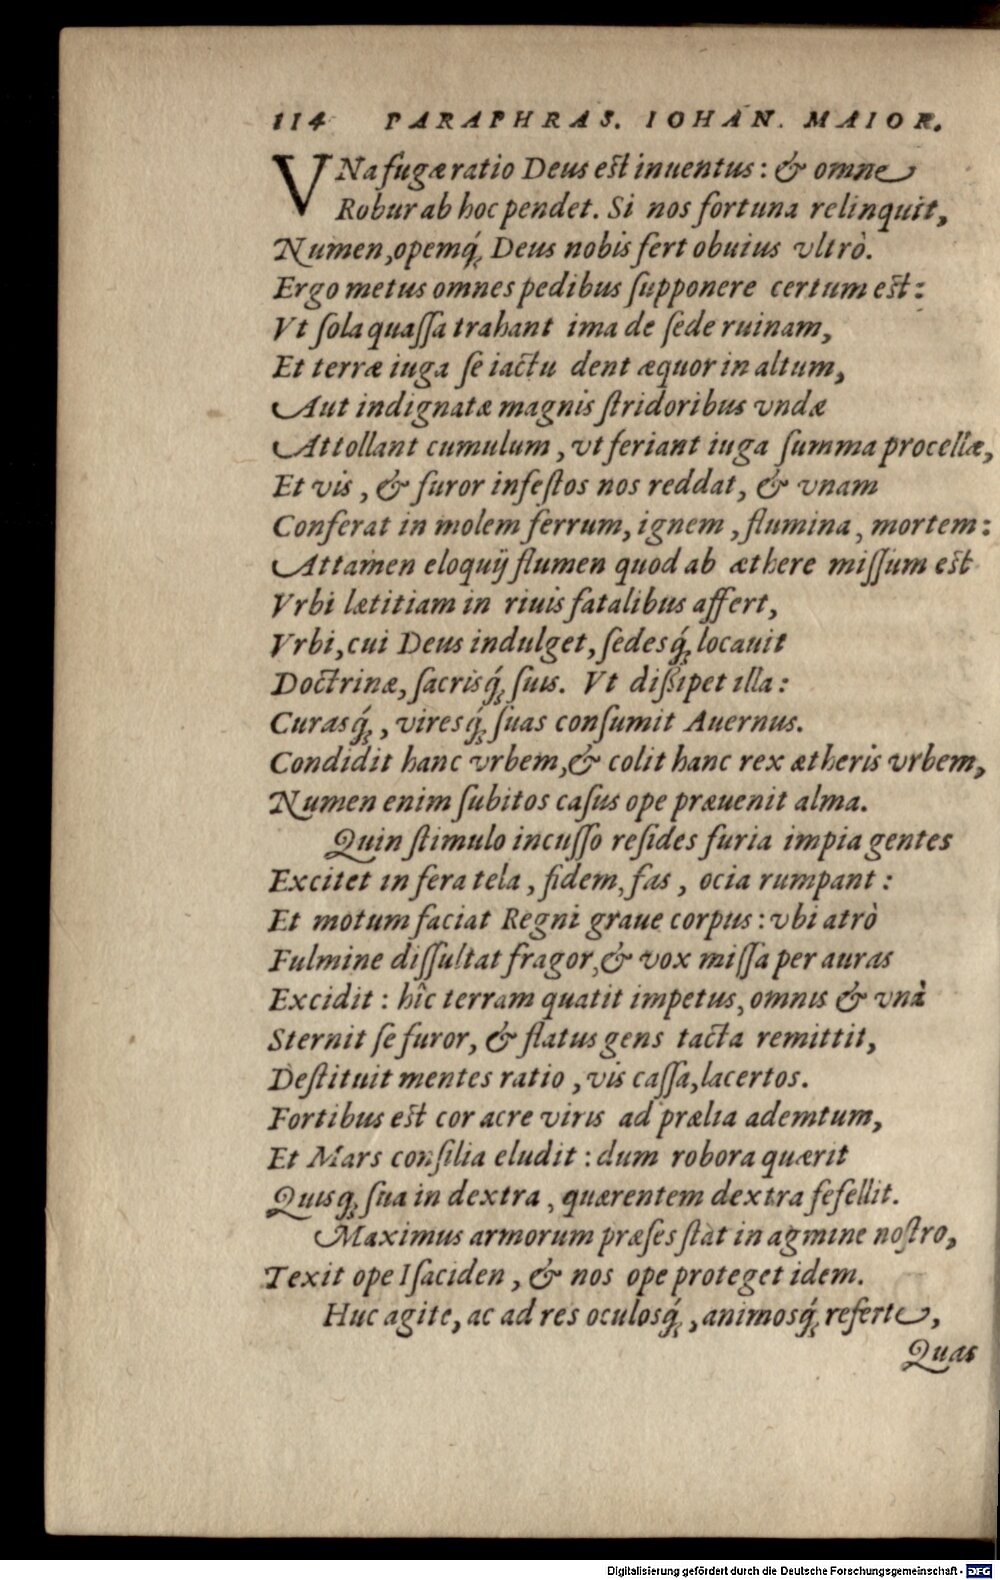 114 PARAPHRAS. IOHAN. MAIOR.
VNa fugæ ratio Deus est inuentus: & omne
Robur ab hoc pendet. Si nos fortuna relinquit,
Numen, opemq́; Deus nobis fert obuius vltrò.
Ergo metus omnes pedibus ſupponere certum est:
Vt ſola quaſſa trahant ima de ſede ruinam,
Et terræ iuga ſe iactu dent æquor in altum,
Aut indignatæ magnis ſtridoribus vndæ
Attollant cumulum, vt feriant iuga ſumma procellæ,
Et vis, & furor infeſtos nos reddat, & vnam
Conferat in molem ferrum, ignem, flumina, mortem:
Attamen eloquij flumen quod ab æthere miſſum est
Vrbi lætitiam in riuis fatalibus affert,
Vrbi, cui Deus indulget, ſedesq́; locauit
Doctrinæ, ſacrisq́; ſuis. Vt diſſipet illa:
Curasq́;, viresq́; ſuas conſumit Auernus.
Condidit hanc vrbem, & colit hanc rex ætheris vrbem,
Numen enim ſubitos caſus ope præuenit alma.
Quin ſtimulo incuſſo reſides furia impia gentes
Excitet in fera tela, fidem, fas, ocia rumpant:
Et motum faciat Regni graue corpus: vbi atrò
Fulmine diſſultat fragor, & vox miſſa per auras
Excidit: hîc terram quatit impetus, omnis & vnà
Sternit ſe furor, & flatus gens tacta remittit,
Deſtituit mentes ratio, vis caſſa, lacertos.
Fortibus est cor acre viris ad prælia ademtum,
Et Mars conſilia eludit: dum robora quærit
Quisq; ſua in dextra, quærentem dextra fefellit.
Maximus armorum præſes ſtat in agmine noſtro,
Texit ope Iſaciden, & nos ope proteget idem.
Huc agite, ac ad res oculosq́;, animosq́; referte,
Quas
Digitalisierung gefördert durch die Deutsche Forschungsgemeinschaft - DFG